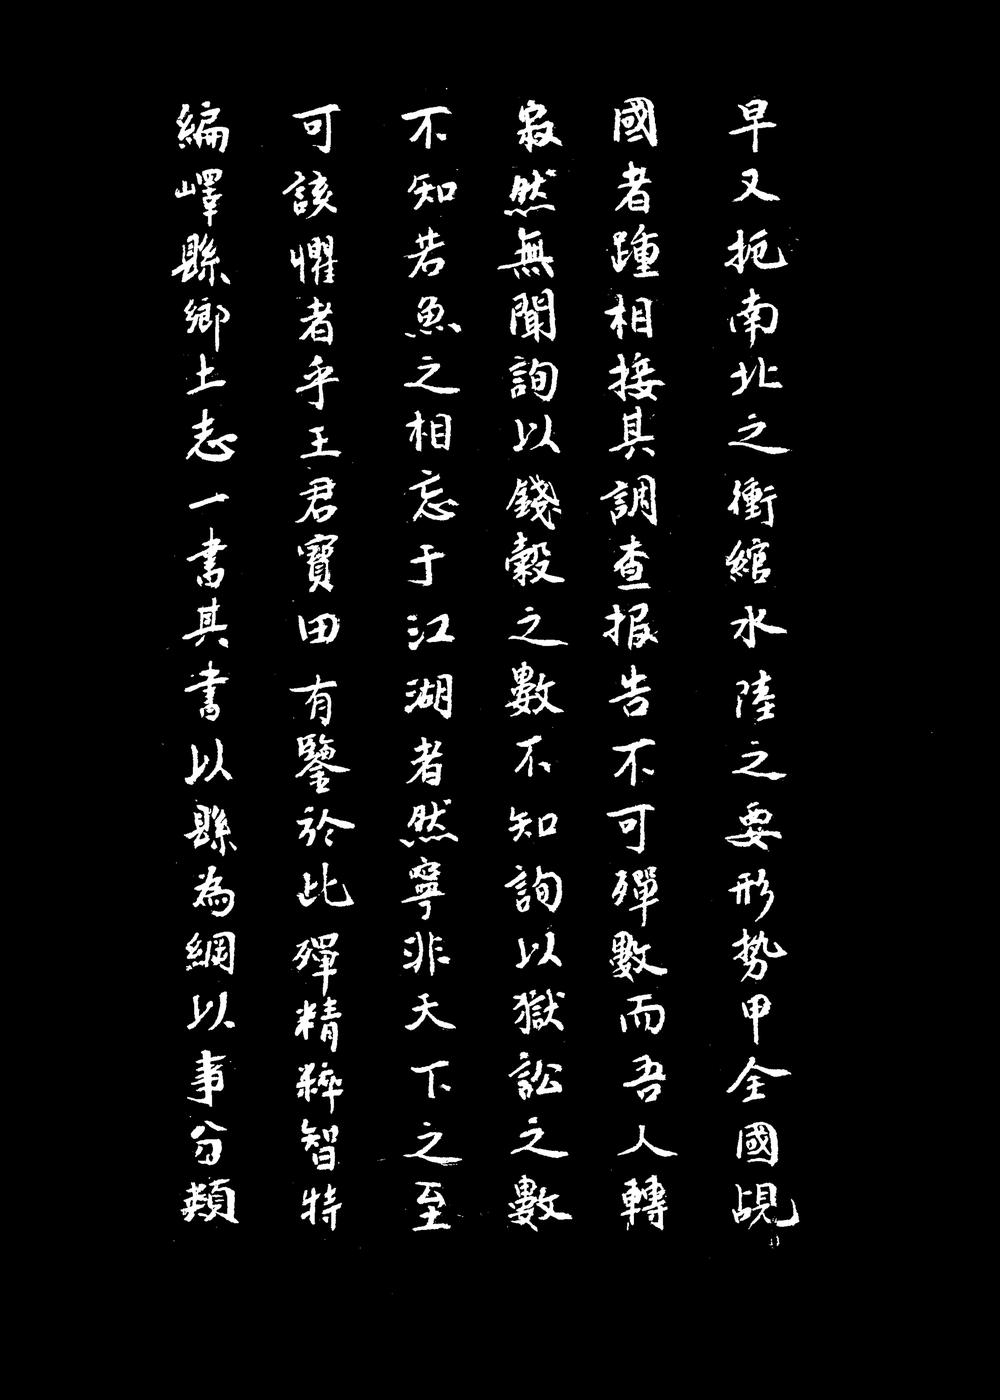 早又扼南北之衝綰水陸之要形勢甲全國覘
國者踵相接其調查報告不可殫數而吾人轉
寂然無聞詢以錢穀之數不知詢以獄訟之數
不知若魚之相忘于江湖者然寧非天下之至
可該懼者乎王君寶田有鑒於此殫精粹智特
編嶧縣鄉土志一書其書以縣為綱以事分類